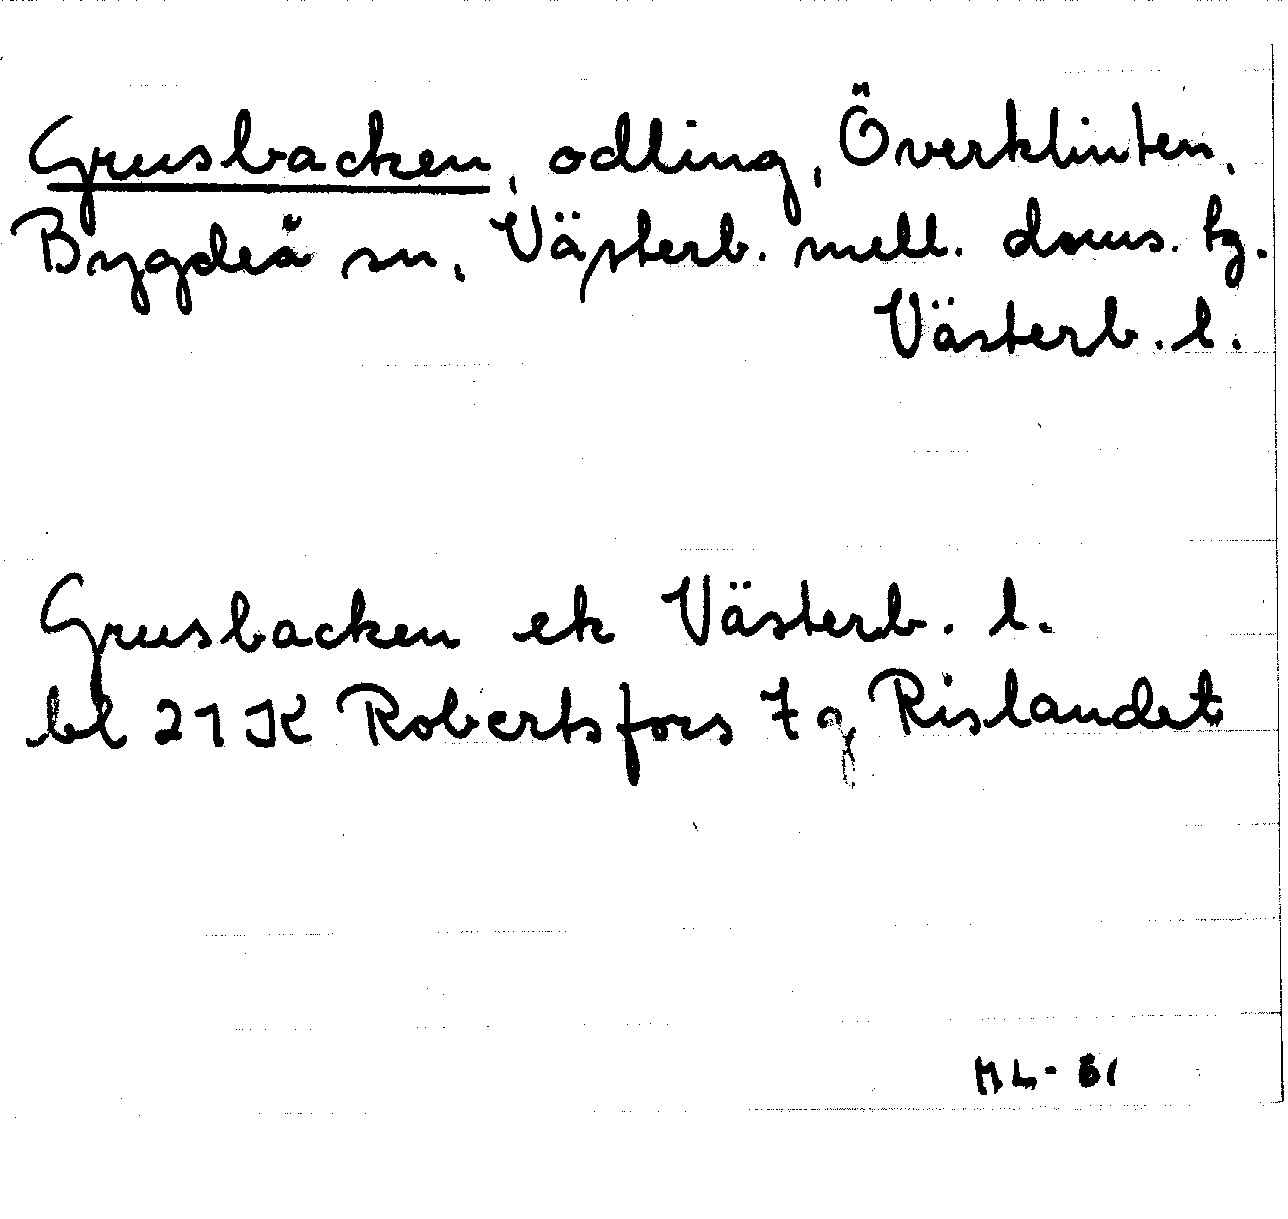 Grusbacken, odling, Överklinten,
Bygdeå sn, Västerb. mell. doms. tg.
Västerb. l.
Grusbacken ek Västerb. l.
bl 21 K Robertsfors 7 g Rislandet
ML-81